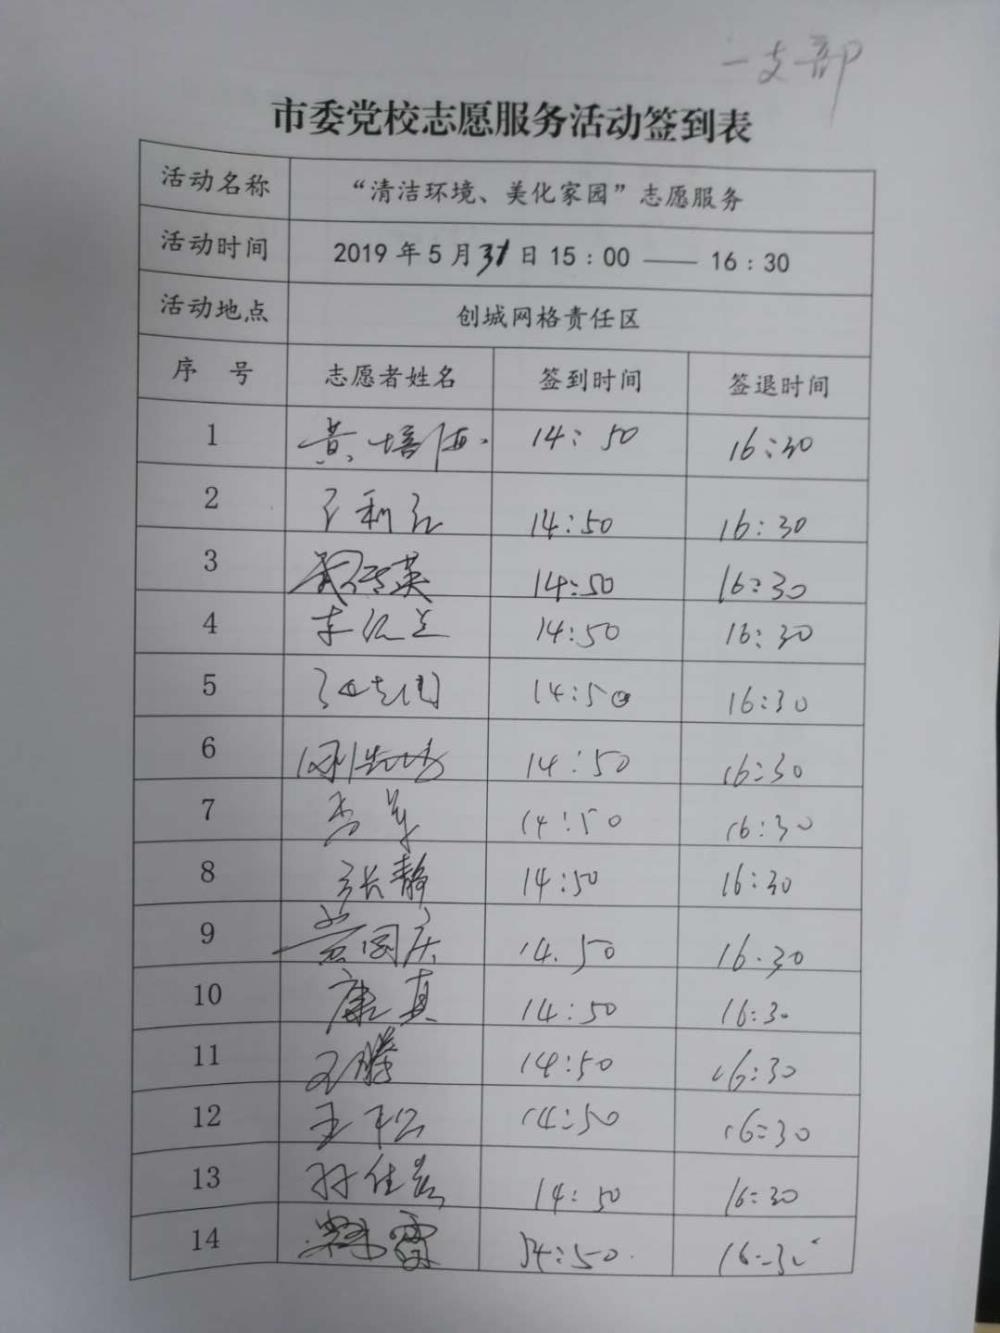 一支部
市委党校志愿服务活动签到表
活动名称 “清洁环境、美化家园”志愿服务
活动时间 2019年5月31日15:00——16:30
活动地点 创城网格责任区
序号 志愿者姓名 签到时间 签退时间
1 黄培 14:50 16:30
2 利 14:50 16:30
3 英 14:50 16:30
4 14:50 16:30
5 14:50 16:30
6 14:50 16:30
7 14:50 16:30
8 张静 14:50 16:30
9 国庆 14.50 16.30
10 康真 14:50 16:30
11 王腾 14:50 16:30
12 王松 14:50 16:30
13 孙佳 14:50 16:30
14 雷 14:50 16:30